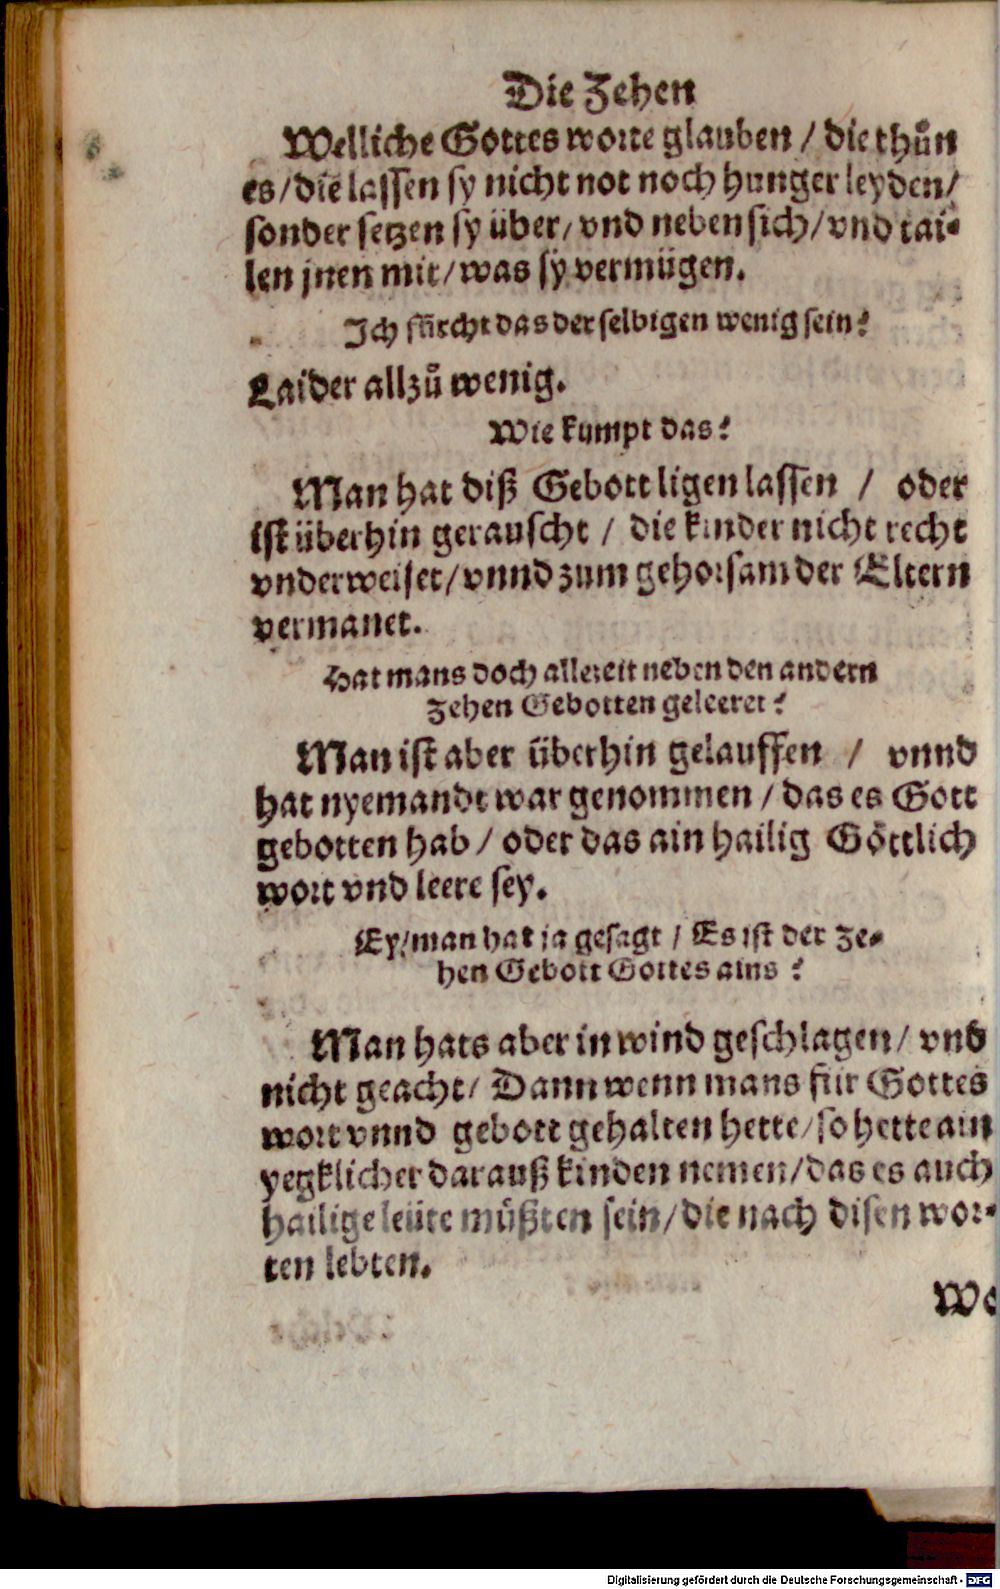 Die Zehen
Welliche Gottes worte glauben / die thůn
es / die lassen sy nicht not noch hunger leyden /
sonder setzen sy über / vnd neben sich / vnd tai-
len jnen mit / was sy vermügen.
Ich fürcht das der selbigen wenig sein?
Laider allzů wenig.
Wie kumpt das?
Man hat diß Gebott ligen lassen / oder
ist überhin gerauscht / die kinder nicht recht
vnderweiset / vnnd zum gehorsam der Eltern
vermanet.
Hat mans doch allezeit neben den andern
Zehen Gebotten geleeret?
Man ist aber überhin gelauffen / vnnd
hat nyemandt war genommen / das es Gott
gebotten hab / oder das ain hailig Göttlich
wort vnd leere sey.
Ey / man hat ja gesagt / Es ist der Ze-
hen Gebott Gottes ains?
Man hats aber in wind geschlagen / vnd
nicht geacht / Dann wenn mans für Gottes
wort vnnd gebott gehalten hette / so hette ain
yegklicher darauß kinden nemen / das es auch
hailige leüte müßten sein / die nach disen wor-
ten lebten.
We
Digitalisierung gefördert durch die Deutsche Forschungsgemeinschaft - DFG